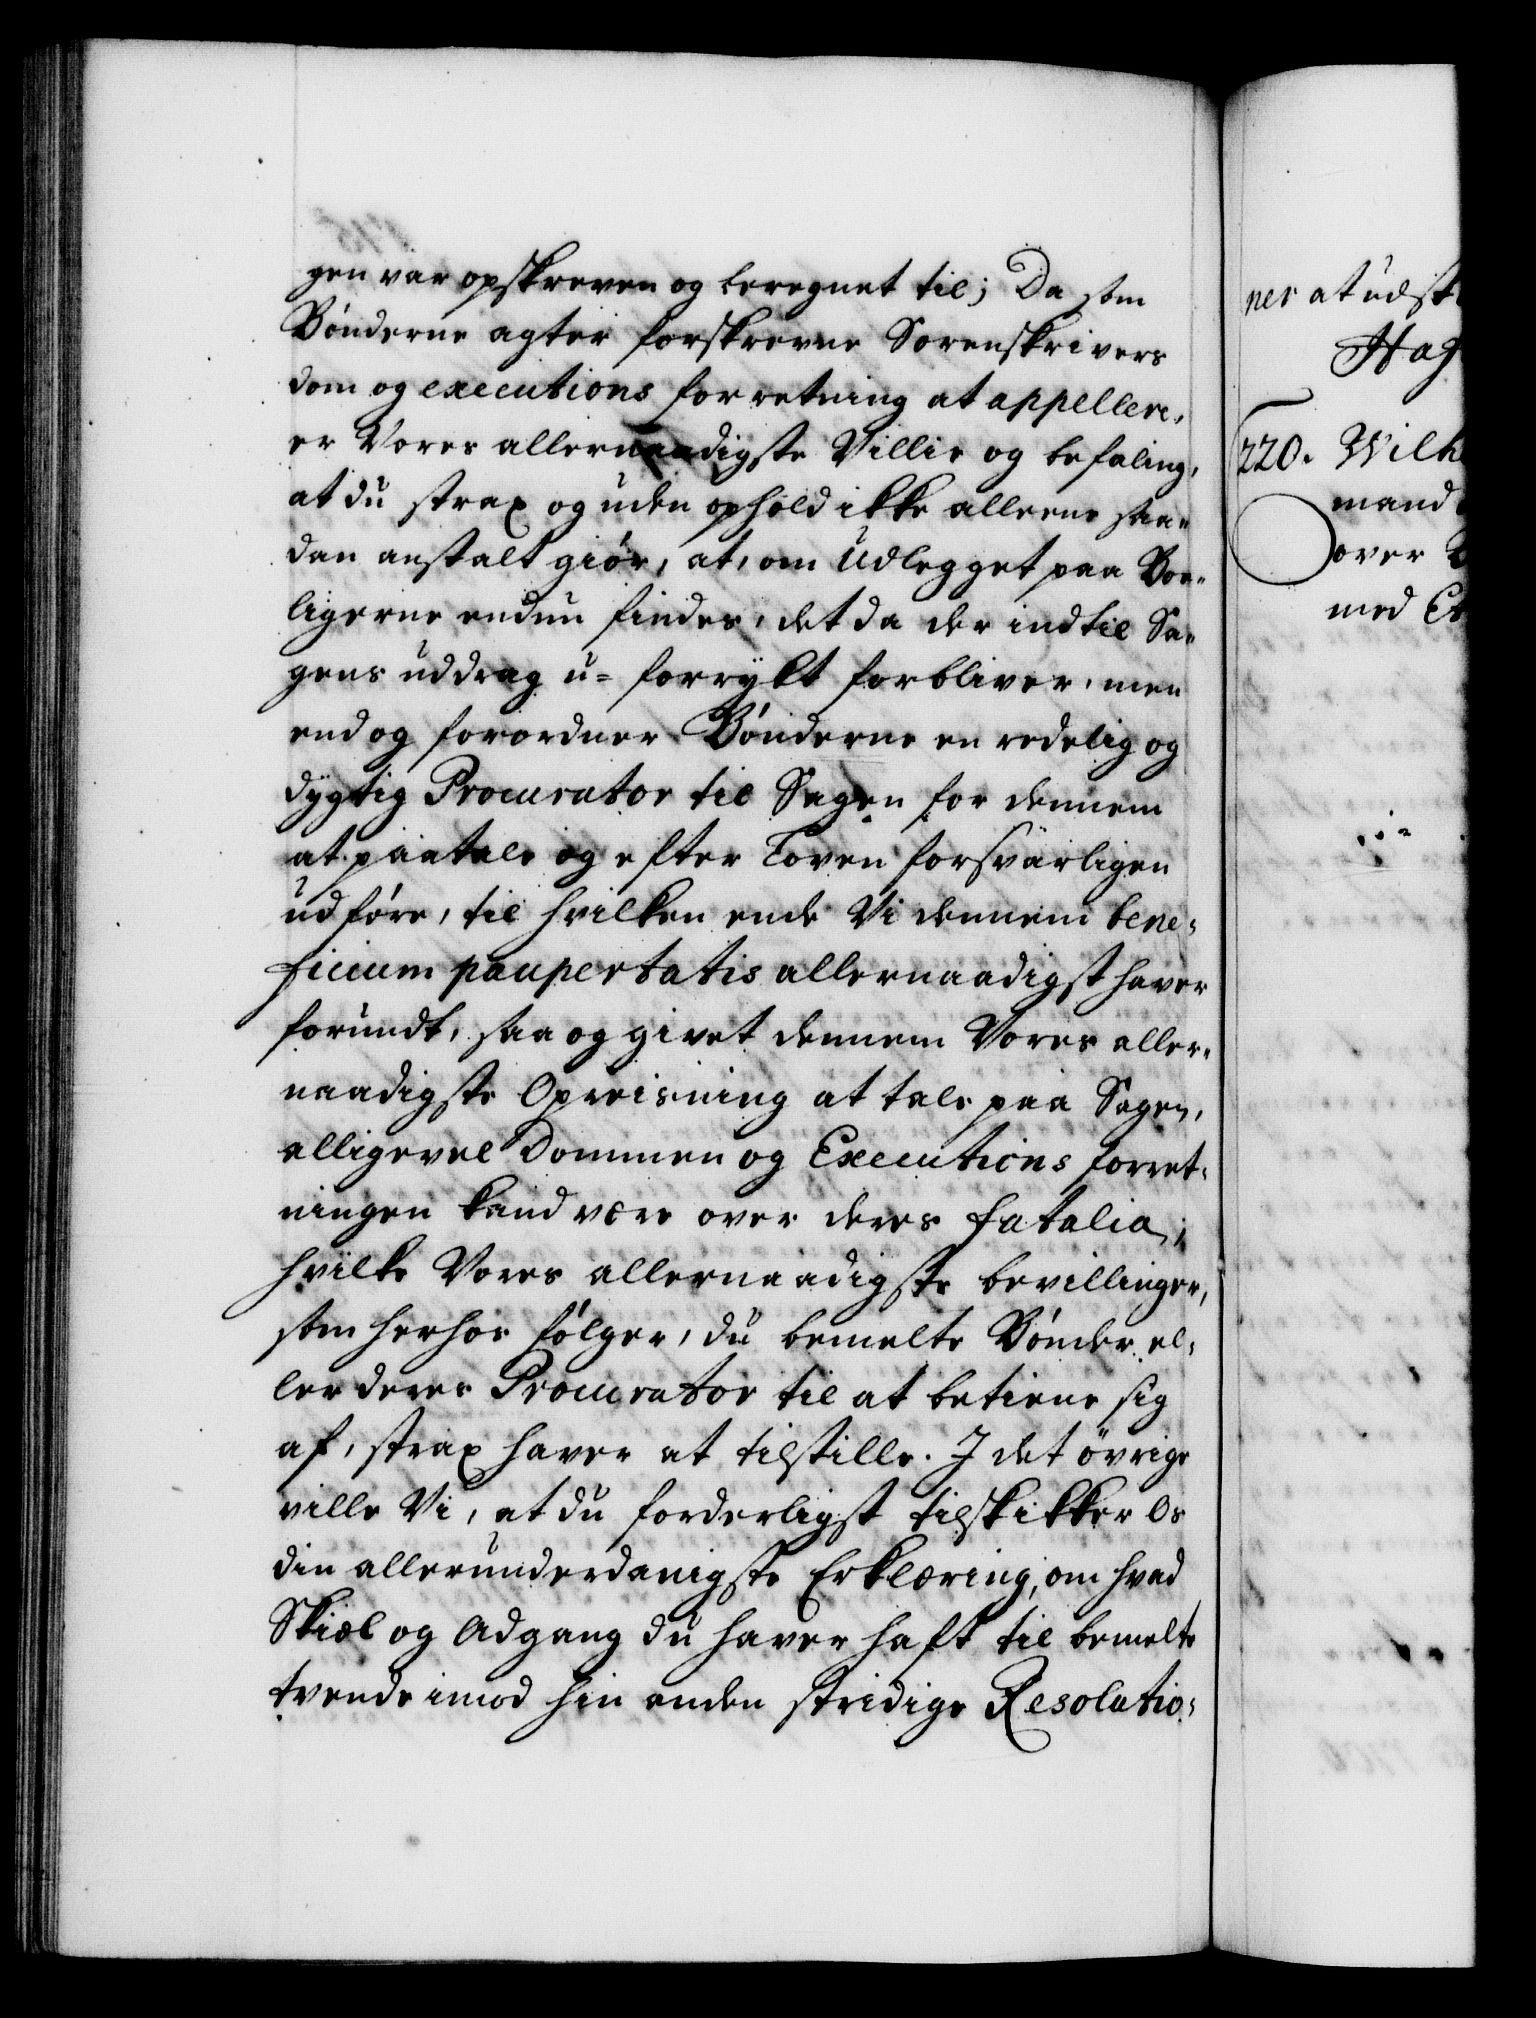 gen var opskreven og beregnet til; Da som
Bønderne agter forskrevne Sorenskrivers
dom og executions forretning at appellere,
er Vores allernaadigste Villie og befaling,
at du strax og uden ophold ikke alleene saa-
dan anstalt giør, at, om Udlegget paa Boe-
ligerne endnu findes, det da der indtil Sa-
gens uddrag u-forrykt forbliver, men
end og forordner Bønderne en redelig og
dygtig Procurator til Sagen for dennem
at paatale og efter Loven forsvarligen
udføre, til hvilken ende Vi dennem bene-
ficium paupertatis allernaadigst haver
forundt, saa og givet dennem Vores aller-
naadigste Opreisning at tale paa Sagen,
alligevel Dommen og Executions forret-
ningen kand være over deres fatalia;
hvilke Vores allernaadigste bevillinger,
som herhos følger, du bemelte Bønder el-
ler deres Procurator til at betiene sig
af, strax haver at tilstille. I det øvrige
ville Vi, at du forderligst tilskikker Os
din allerunderdanigste Erklæring, om hvad
Skiæl og Adgang du haver haft til bemelte
tvende imod hin anden stridige Resolutio-
ner at udst
Hag
220. Wilh
mand
over
med